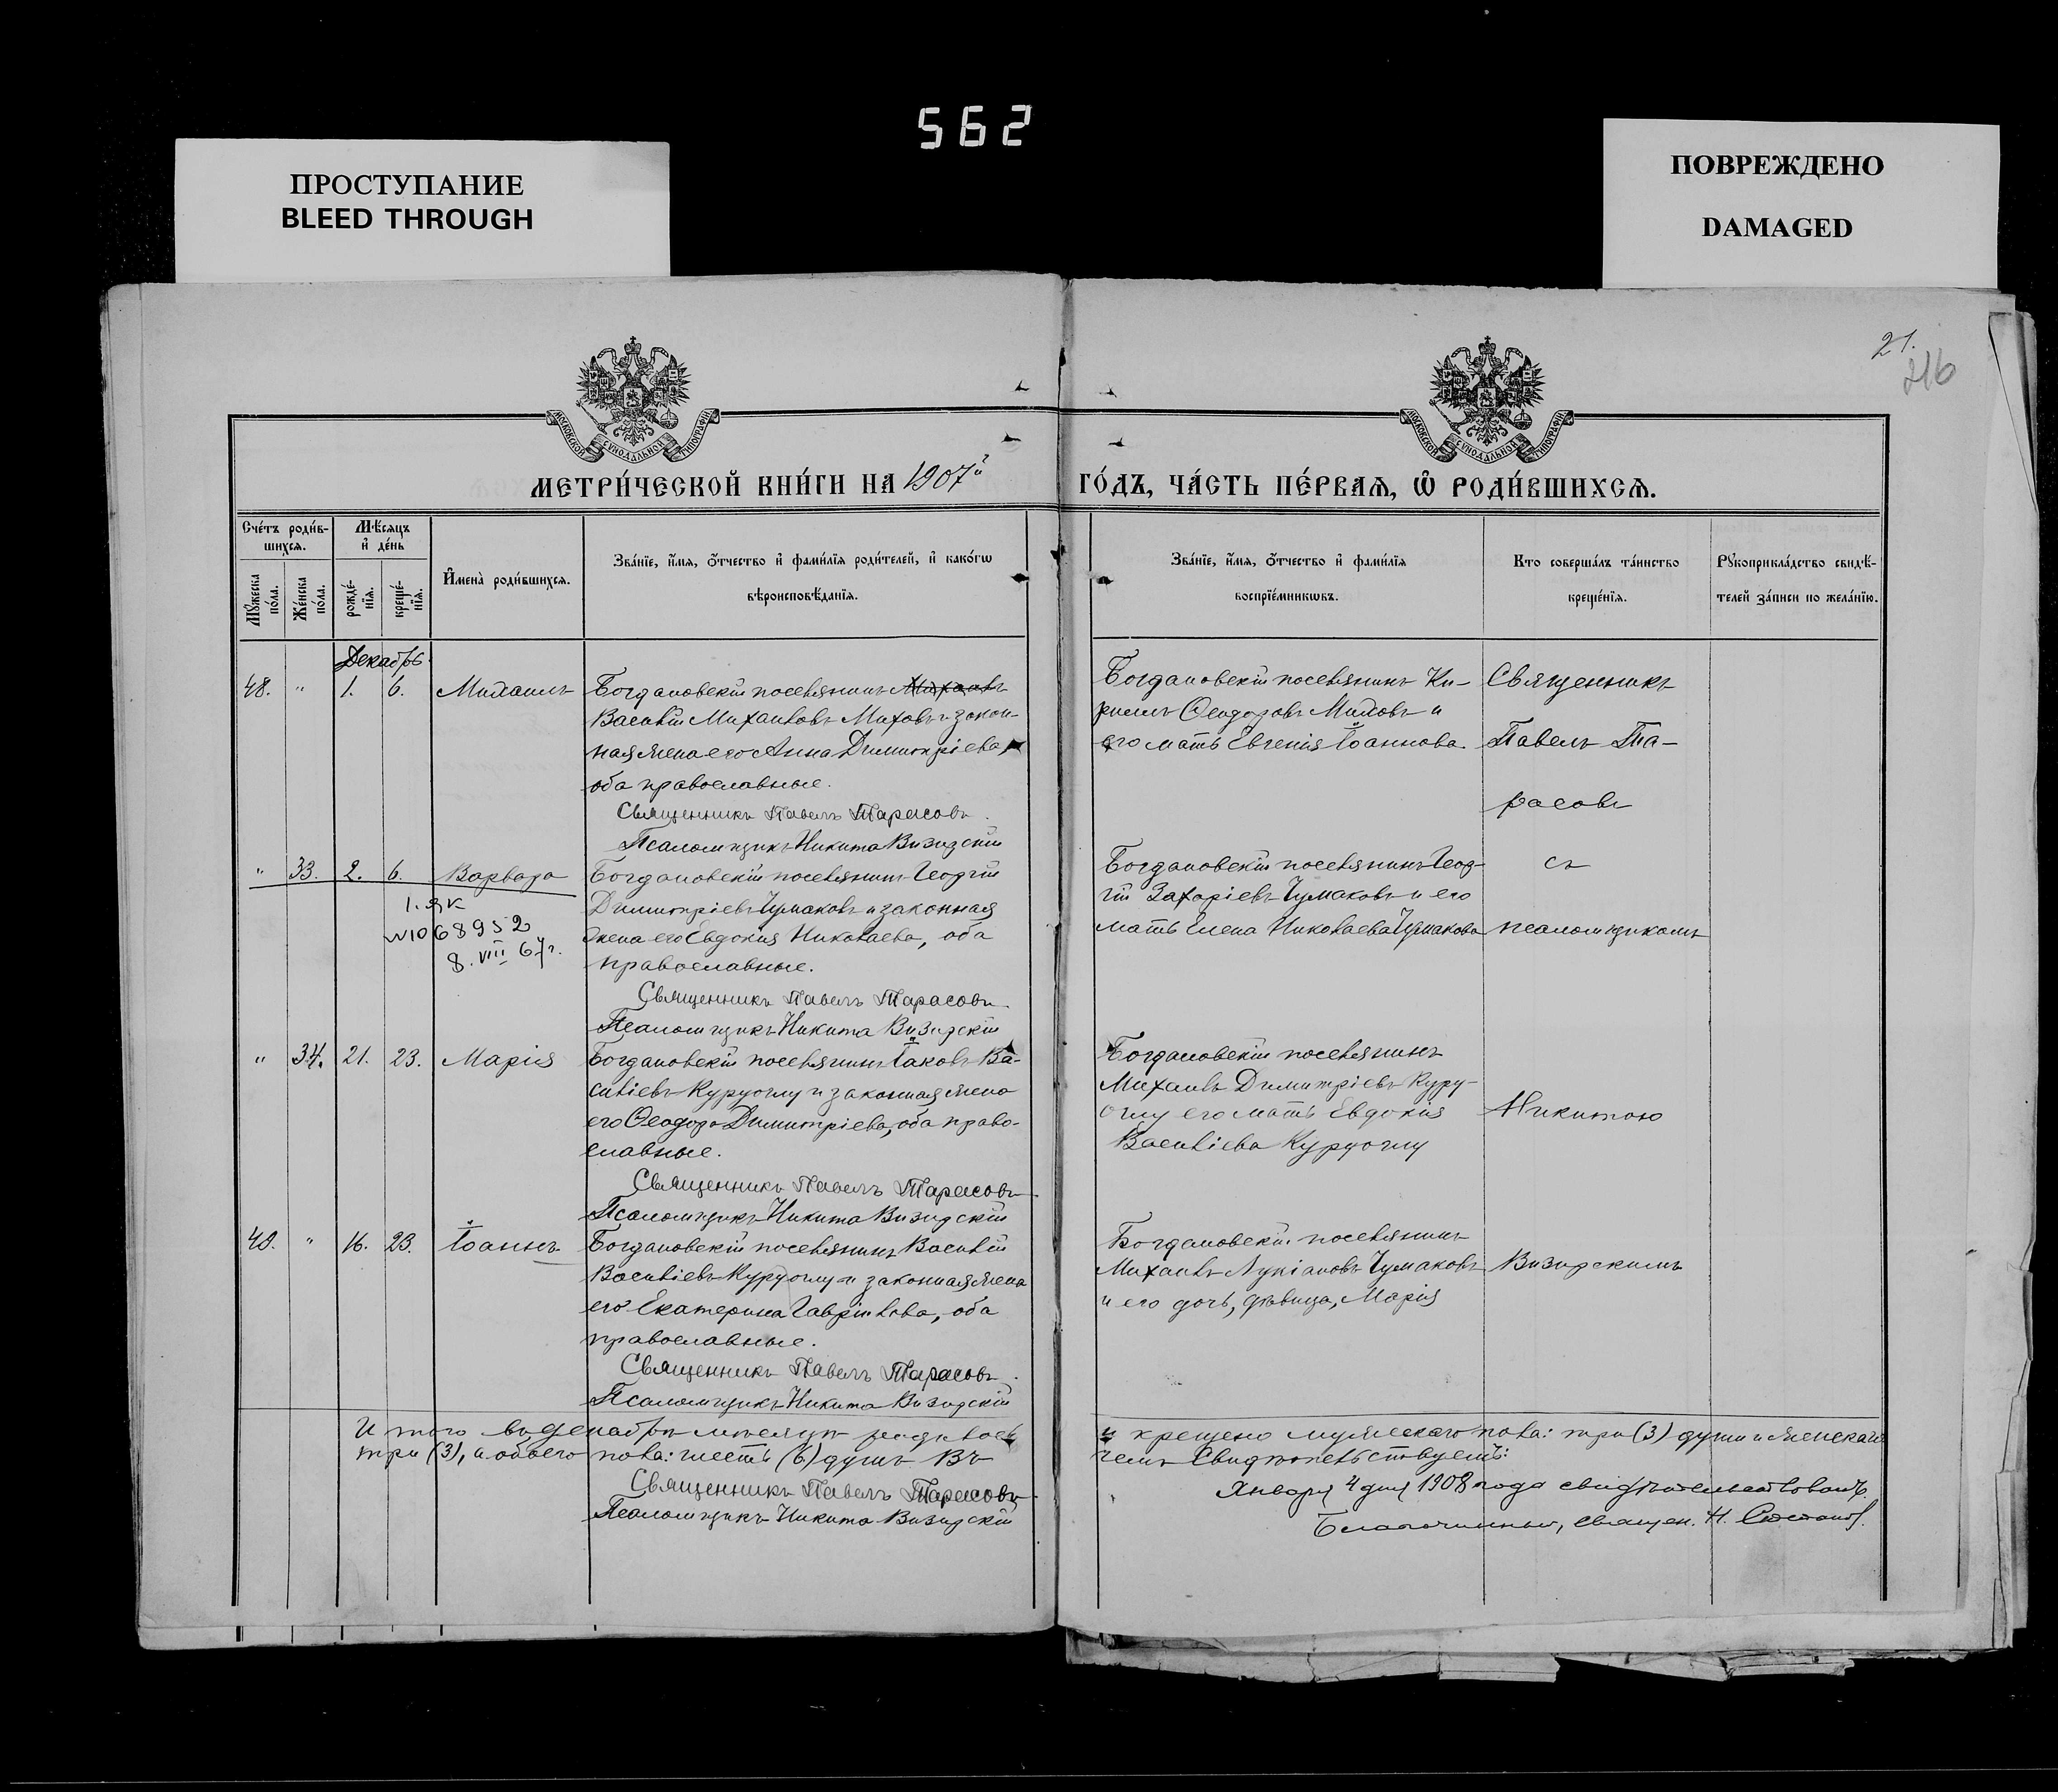 562
ПРОСТУПАНИЕ
BLEED THROUGH
ПОВРЕЖДЕНО
DAMAGED
21.
216
МОСКОВСКОЙ СУНОДАЛЬНОЙ ТИПОГРАФІИ
МОСКОВСКОЙ СУНОДАЛЬНОЙ ТИПОГРАФІИ
МЕТРИ́ЧЕСКОЙ КНИ́ГИ НА 1907й
ГО́ДЪ, ЧА́СТЬ ПЕ́РВАѦ, Ѽ РОДИ́ВШИХСѦ.
Сче́тъ роди́в-
шихсѧ.
Мꙋ́жеска по́ла.
Же́нска по́ла.
Мѣ́сѧцъ
и҆ де́нь
рожде́-
нїѧ.
креще́-
нїѧ.
И҆мена̀ роди́вшихсѧ.
Зва́нїе, и҆́мѧ, ѻ҆́тчество и҆ фами́лїѧ роди́телей, и҆ како́гѡ
вѣроисповѣ́данїѧ.
Зва́нїе, и҆́мѧ, ѻ҆́тчество и҆ фами́лїѧ
воспрїе́мникѡвъ.
Кто соверша́лъ та́инство
креще́нїѧ.
Рꙋкоприкла́дство свидѣ́-
телей за́писи по жела́нїю.
Декабрь.
48. " 1. 6. Михаилъ
Богдановскій поселянинъ Михаилъ
Василій Михаиловъ Миховъ и закон-
ная жена его Анна Димитріева,
оба православные.
Священникъ Павелъ Тарасовъ.
Псаломщикъ Никита Визирскій
Богдановскій поселянинъ Ки-
риллъ Ѳеодоровъ Миховъ и
его мать Евгенія Іоаннова.
Священникъ
Павелъ Та-
расовъ
" 33. 2. 6. Варвара
1. як
№1068952
8. VIII 67г.
Богдановскій поселянинъ Георгій
Димитріевъ Чумаковъ и законная
жена его Евдокія Николаева, оба
православные.
Священникъ Павелъ Тарасовъ.
Псаломщикъ Никита Визирскій
Богдановскій поселянинъ Геор-
гій Захаріевъ Чумаковъ и его
мать Елена Николаева Чумакова
съ
псаломщикомъ
" 34. 21. 23. Марія
Богдановскій поселянинъ Іаковъ Ва-
силіевъ Куруоглу и законная жена
его Ѳеодора Димитріева, оба право-
славные.
Священникъ Павелъ Тарасовъ
Псаломщикъ Никита Визирскій
Богдановскій поселянинъ
Михаилъ Димитріевъ Куру-
оглу его мать Евдокія
Василіева Куруоглу
Никитою
49. " 16. 23. Іоаннъ
Богдановскій поселянинъ Василій
Василіевъ Куруоглу и законная жена
его Екатерина Гавріилова, оба
православные.
Священникъ Павелъ Тарасовъ.
Псаломщикъ Никита Визирскій
Богдановскій поселянинъ
Михаилъ Лукіановъ Чумаковъ
и его дочь, дѣвица, Марія
Визирскимъ
Итого въ декабрѣ мѣсяцѣ родилось и крещено мужескаго пола: три (3) души и женскаго
три (3), и обоего пола: шесть (6) душъ. Въ чемъ свидѣтельствуемъ:
Священникъ Павелъ Тарасовъ
Псаломщикъ Никита Визирскій
Января 4 дня 1908 года свидѣтельствовалъ.
Благочинный, священ. Н.